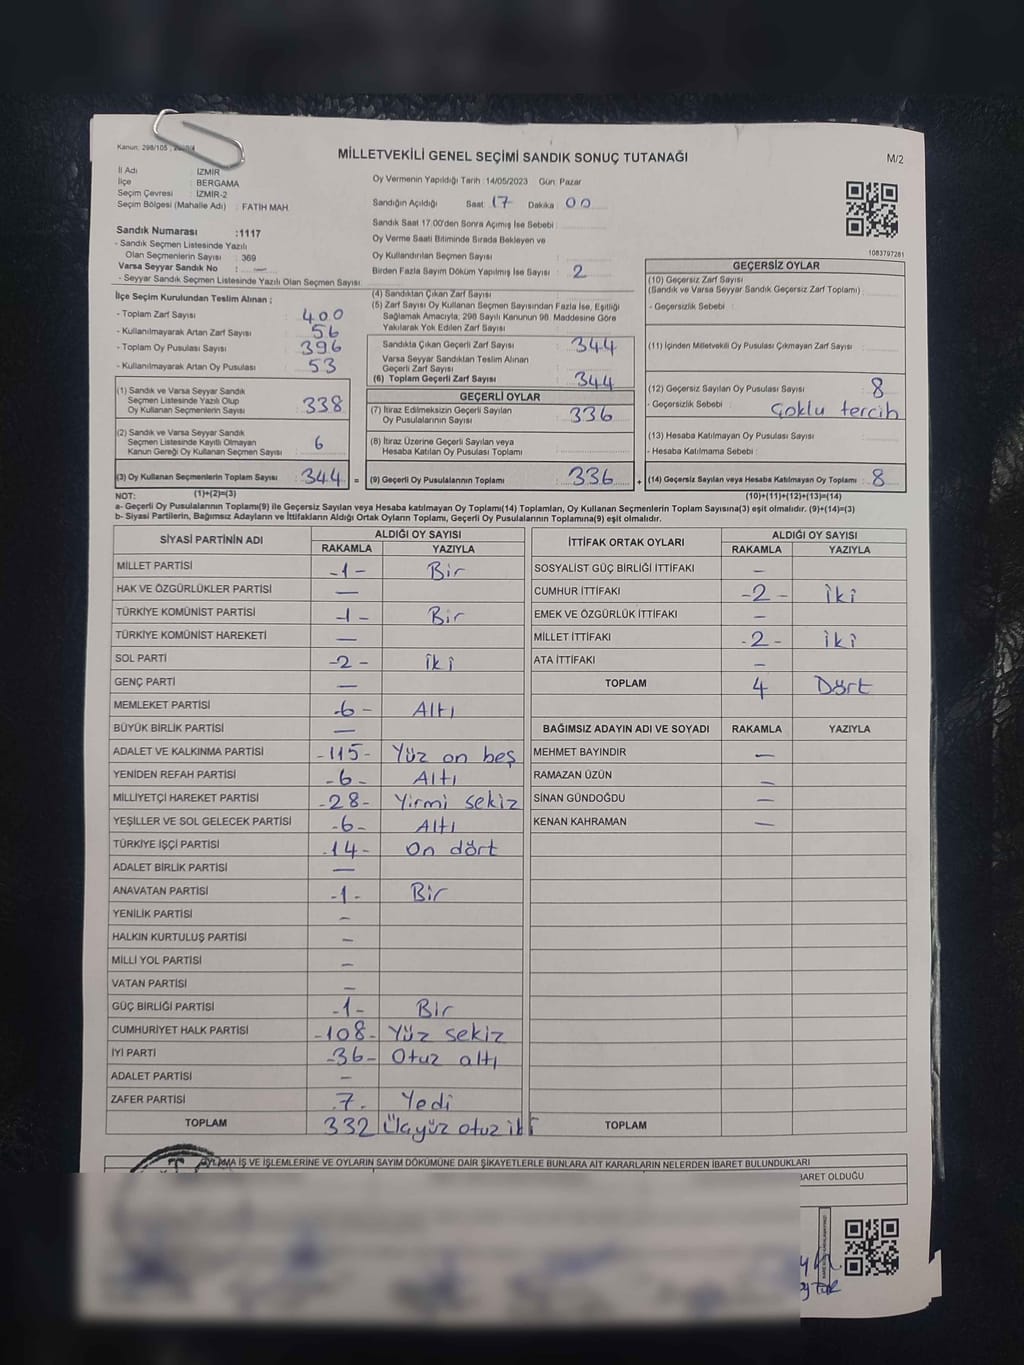 Kanun: 298/105
MİLLETVEKİLİ GENEL SEÇİMİ SANDIK SONUÇ TUTANAĞI
M/2
İl Adı : İZMİR
İlçe : BERGAMA
Seçim Çevresi : İZMİR-2
Seçim Bölgesi (Mahalle Adı) : FATİH MAH.
Oy Vermenin Yapıldığı Tarih :14/05/2023 Gün: Pazar
Sandığın Açıldığı Saat: 17 Dakika: 00
Sandık Saat 17.00'den Sonra Açımış İse Sebebi :
Oy Verme Saati Bitiminde Sırada Bekleyen ve
Oy Kullandırılan Seçmen Sayısı :
Birden Fazla Sayım Döküm Yapılmış İse Sayısı : 2
1083797281
Sandık Numarası :1117
- Sandık Seçmen Listesinde Yazılı
Olan Seçmenlerin Sayısı : 369
Varsa Seyyar Sandık No : —
- Seyyar Sandık Seçmen Listesinde Yazılı Olan Seçmen Sayısı :
İlçe Seçim Kurulundan Teslim Alınan ;
- Toplam Zarf Sayısı : 400
- Kullanılmayarak Artan Zarf Sayısı : 56
- Toplam Oy Pusulası Sayısı : 396
- Kullanılmayarak Artan Oy Pusulası : 53
(1) Sandık ve Varsa Seyyar Sandık
Seçmen Listesinde Yazılı Olup
Oy Kullanan Seçmenlerin Sayısı : 338
(2) Sandık ve Varsa Seyyar Sandık
Seçmen Listesinde Kayıtlı Olmayan
Kanun Gereği Oy Kullanan Seçmen Sayısı : 6
(3) Oy Kullanan Seçmenlerin Toplam Sayısı : 344 =
(1)+(2)=(3)
(4) Sandıktan Çıkan Zarf Sayısı :
(5) Zarf Sayısı Oy Kullanan Seçmen Sayısından Fazla İse, Eşitliği
Sağlamak Amacıyla; 298 Sayılı Kanunun 98. Maddesine Göre
Yakılarak Yok Edilen Zarf Sayısı :
Sandıkta Çıkan Geçerli Zarf Sayısı : 344
Varsa Seyyar Sandıktan Teslim Alınan
Geçerli Zarf Sayısı :
(6) Toplam Geçerli Zarf Sayısı : 344
GEÇERLİ OYLAR
(7) İtiraz Edilmeksizin Geçerli Sayılan
Oy Pusulalarının Sayısı : 336
(8) İtiraz Üzerine Geçerli Sayılan veya
Hesaba Katılan Oy Pusulası Toplamı :
(9) Geçerli Oy Pusulalarının Toplamı : 336 +
GEÇERSİZ OYLAR
(10) Geçersiz Zarf Sayısı
(Sandık ve Varsa Seyyar Sandık Geçersiz Zarf Toplamı) :
- Geçersizlik Sebebi :
(11) İçinden Milletvekili Oy Pusulası Çıkmayan Zarf Sayısı :
(12) Geçersiz Sayılan Oy Pusulası Sayısı : 8
- Geçersizlik Sebebi : Çoklu tercih
(13) Hesaba Katılmayan Oy Pusulası Sayısı :
- Hesaba Katılmama Sebebi :
(14) Geçersiz Sayılan veya Hesaba Katılmayan Oy Toplamı : 8
(10)+(11)+(12)+(13)=(14)
NOT:
a- Geçerli Oy Pusulalarının Toplamı(9) ile Geçersiz Sayılan veya Hesaba katılmayan Oy Toplamı(14) Toplamları, Oy Kullanan Seçmenlerin Toplam Sayısına(3) eşit olmalıdır. (9)+(14)=(3)
b- Siyasi Partilerin, Bağımsız Adayların ve İttifakların Aldığı Ortak Oyların Toplamı, Geçerli Oy Pusulalarının Toplamına(9) eşit olmalıdır.
SİYASİ PARTİNİN ADI ALDIĞI OY SAYISI
RAKAMLA YAZIYLA
MİLLET PARTİSİ -1- Bir
HAK VE ÖZGÜRLÜKLER PARTİSİ —
TÜRKİYE KOMÜNİST PARTİSİ -1- Bir
TÜRKİYE KOMÜNİST HAREKETİ —
SOL PARTİ -2- iki
GENÇ PARTİ —
MEMLEKET PARTİSİ -6- Altı
BÜYÜK BİRLİK PARTİSİ —
ADALET VE KALKINMA PARTİSİ -115- Yüz on beş
YENİDEN REFAH PARTİSİ -6- Altı
MİLLİYETÇİ HAREKET PARTİSİ -28- Yirmi sekiz
YEŞİLLER VE SOL GELECEK PARTİSİ -6- Altı
TÜRKİYE İŞÇİ PARTİSİ -14- On dört
ADALET BİRLİK PARTİSİ —
ANAVATAN PARTİSİ -1- Bir
YENİLİK PARTİSİ –
HALKIN KURTULUŞ PARTİSİ –
MİLLİ YOL PARTİSİ –
VATAN PARTİSİ –
GÜÇ BİRLİĞİ PARTİSİ -1- Bir
CUMHURİYET HALK PARTİSİ -108- Yüz sekiz
İYİ PARTİ -36- Otuz altı
ADALET PARTİSİ –
ZAFER PARTİSİ .7. Yedi
TOPLAM 332 Üçyüz otuz iki
İTTİFAK ORTAK OYLARI ALDIĞI OY SAYISI
RAKAMLA YAZIYLA
SOSYALİST GÜÇ BİRLİĞİ İTTİFAKI –
CUMHUR İTTİFAKI -2- iki
EMEK VE ÖZGÜRLÜK İTTİFAKI –
MİLLET İTTİFAKI -2- iki
ATA İTTİFAKI –
TOPLAM 4 Dört
BAĞIMSIZ ADAYIN ADI VE SOYADI RAKAMLA YAZIYLA
MEHMET BAYINDIR —
RAMAZAN ÜZÜN –
SİNAN GÜNDOĞDU —
KENAN KAHRAMAN —
TOPLAM
OYLAMA İŞ VE İŞLEMLERİNE VE OYLARIN SAYIM DÖKÜMÜNE DAİR ŞİKAYETLERLE BUNLARA AİT KARARLARIN NELERDEN İBARET BULUNDUKLARI
İBARET OLDUĞU